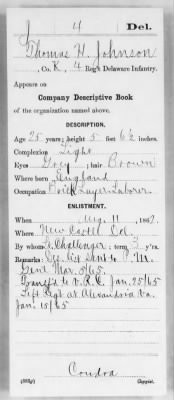 J 4 Del.
Thomas H. Johnson
, Co. K, 4 Reg't Delaware Infantry.
Appears on
Company Descriptive Book
of the organization named above.
DESCRIPTION.
Age 25 years; height 5 feet 6½ inches.
Complexion Light
Eyes Grey; hair Brown
Where born England
Occupation Brick Layer Laborer
ENLISTMENT.
When Aug. 11, 1862.
Where New Castle Co.
By whom Challenger; term 3 y'rs.
Remarks: Des. list sent to P. M.
Genl Mar. 5/65.
Transf'd to V.R.C. Jan. 25/65
Left Regt at Alexandria Va.
Jan. 15/65
Condra
Copyist.